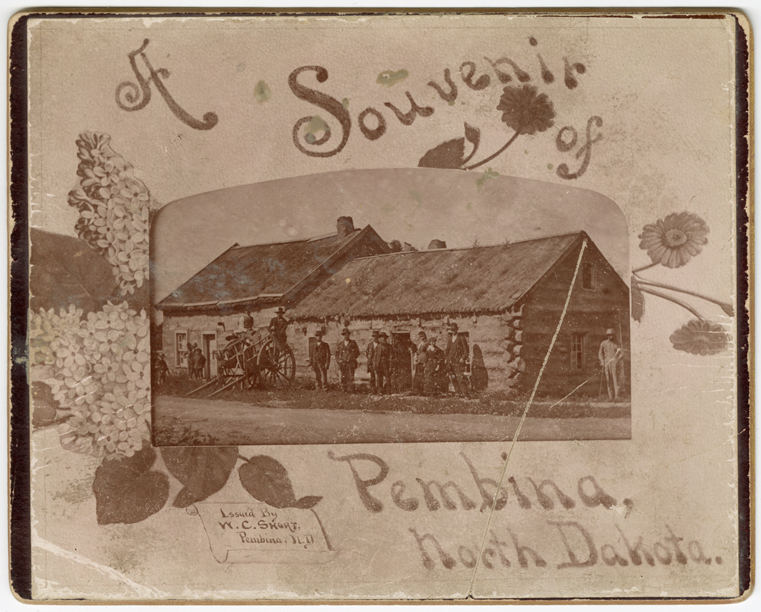 A Souvenir
of
Pembina,
North Dakota.
Issued By
W. C. Short,
Pembina. N.D